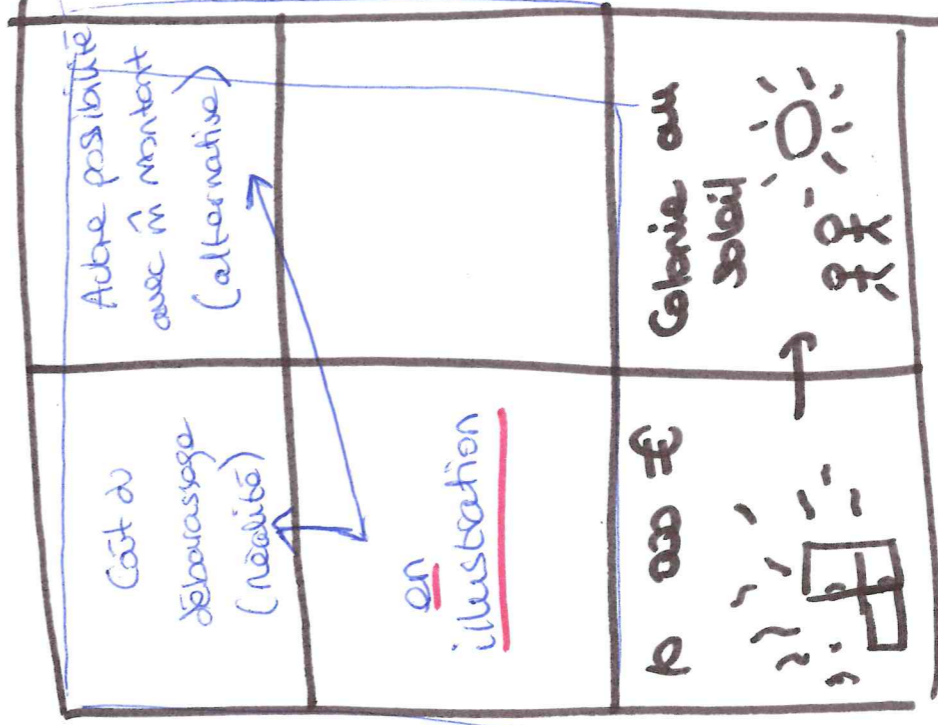 Coût du
débarassage
(réalité)
Autre possibilité
avec m̂ montant
(alternative)
en
illustration
000 €
Colonie au
soleil